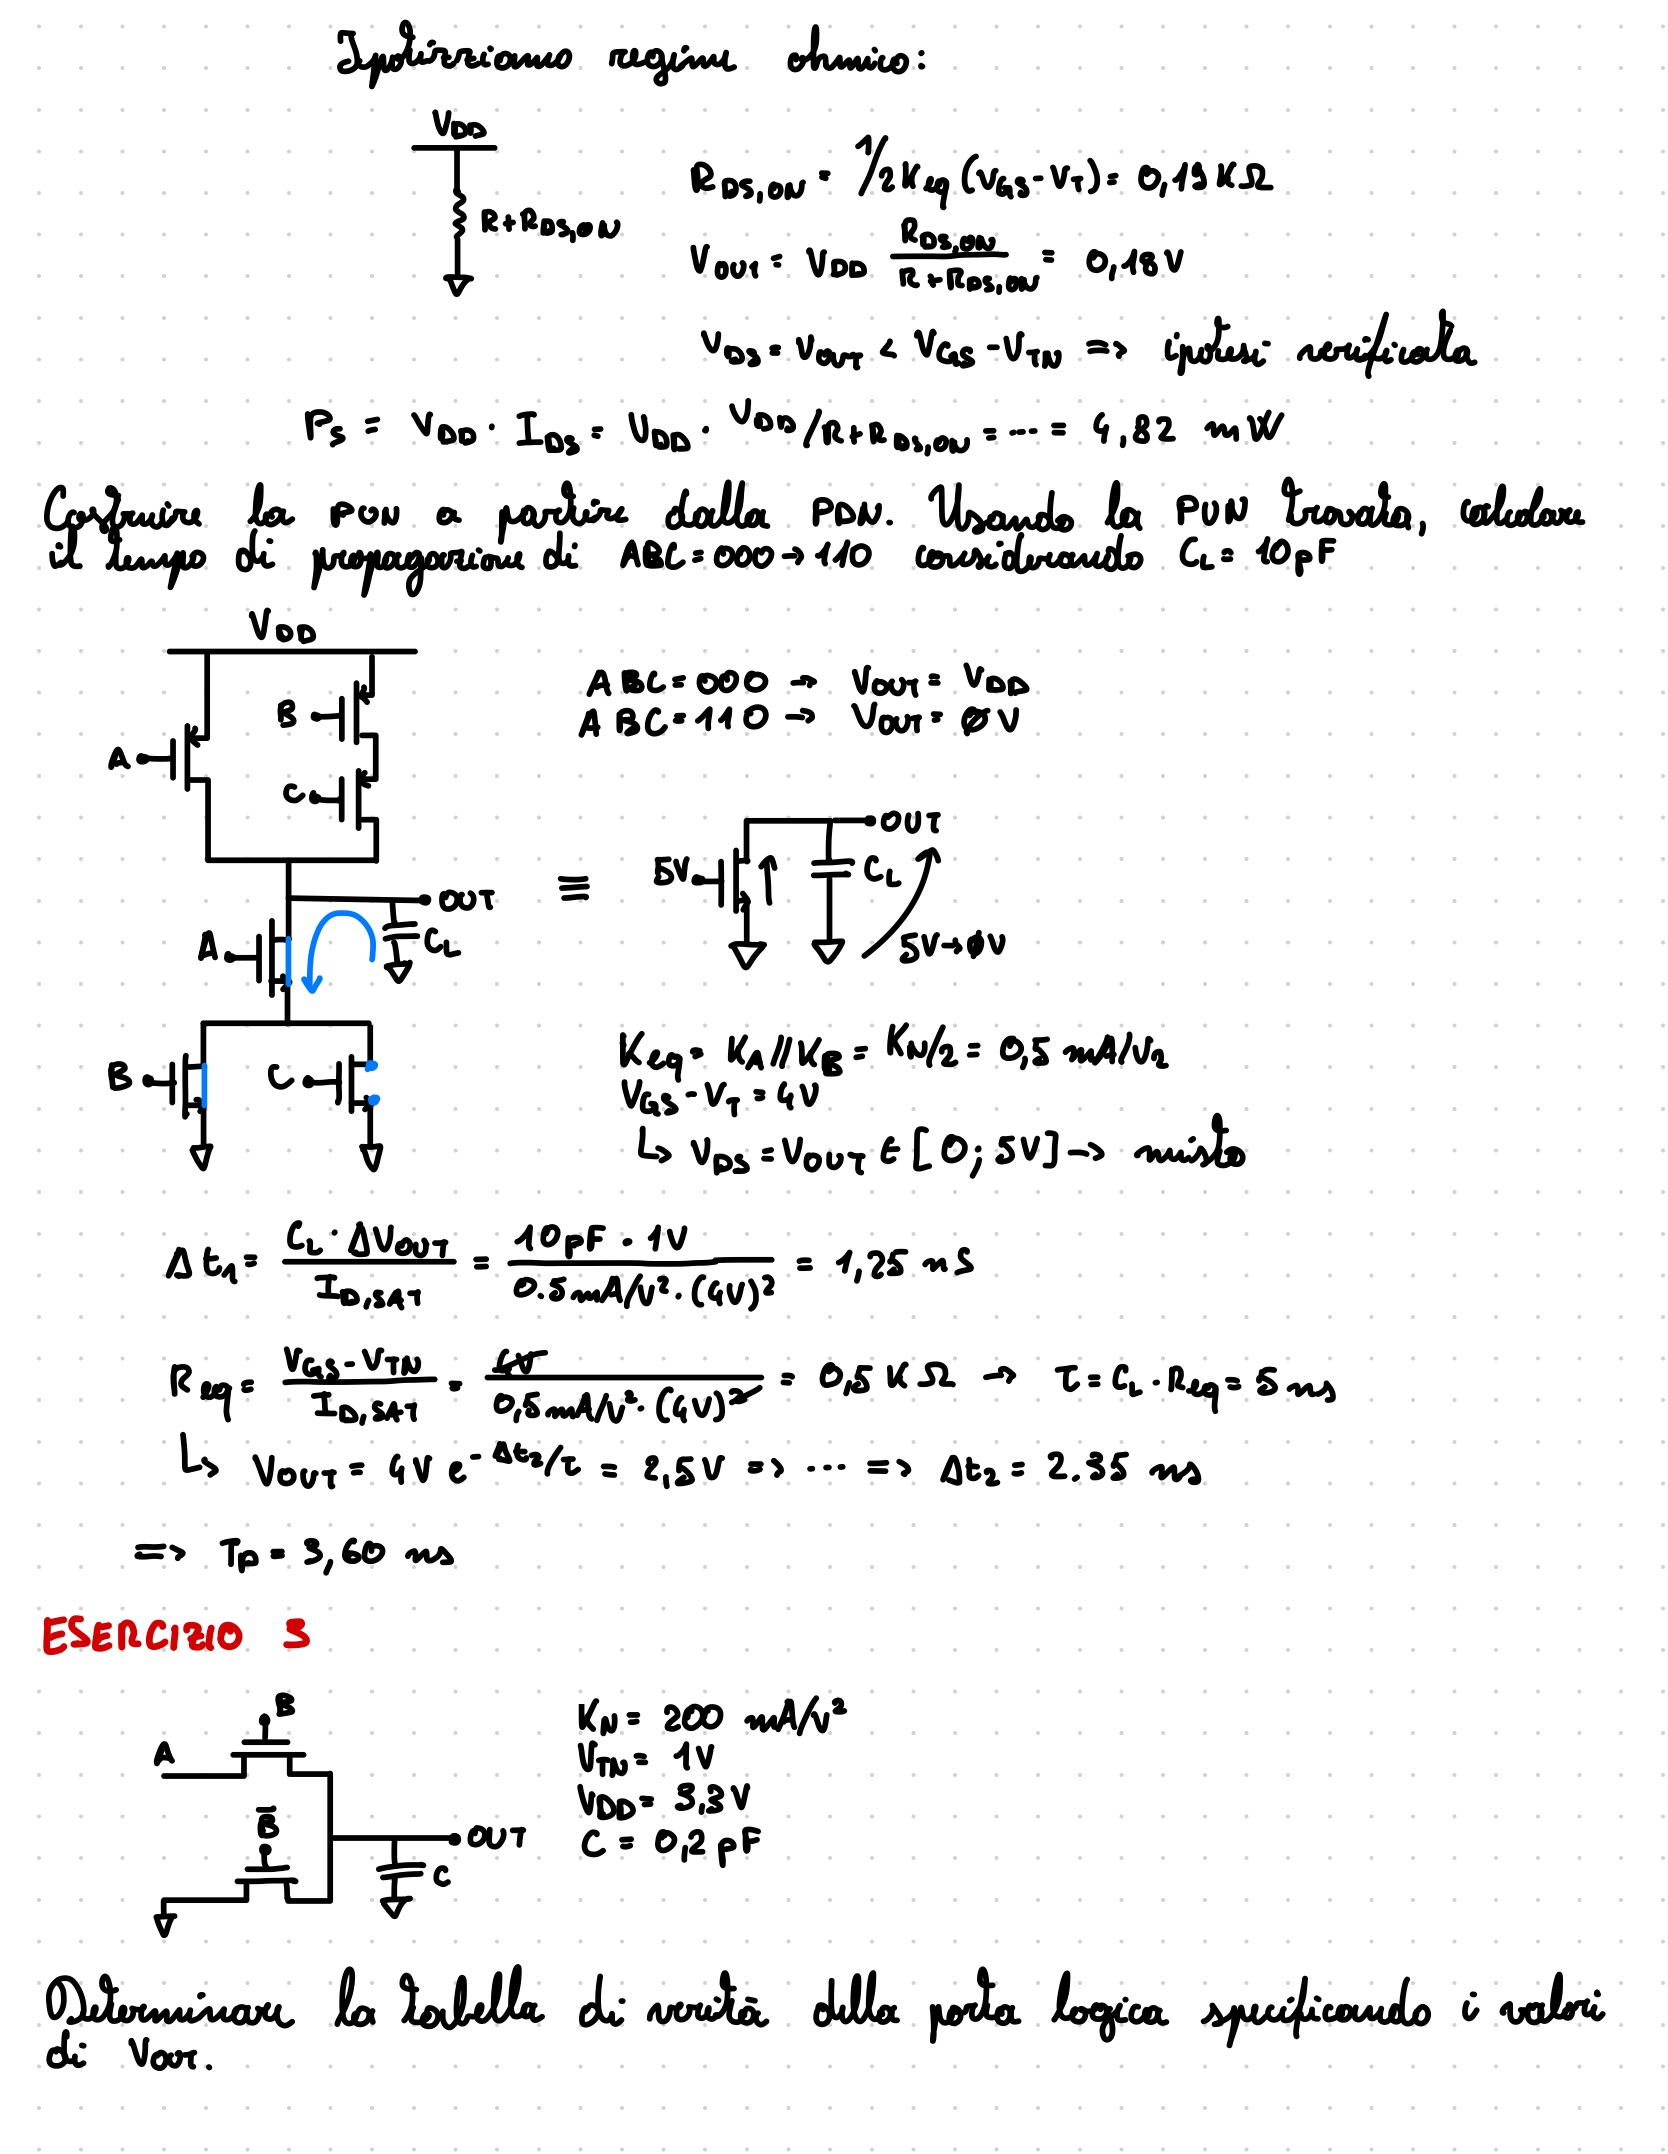 Ipotizziamo regime ohmico:
VDD
R+RDS,ON
RDS,ON = 1/2Keq (VGS-VT) = 0,19 KΩ
VOUT = VDD RDS,ON / R+RDS,ON = 0,18 V
VDS = VOUT < VGS -VTN => ipotesi verificata
PS = VDD · IDS = VDD · VDD/R+RDS,ON = ... = 4,82 mW
Costruire la PUN a partire dalla PDN. Usando la PUN trovata, calcolare
il tempo di propagazione di ABC=000→110 considerando CL= 10pF
VDD
ABC=000 → VOUT= VDD
ABC=110 → VOUT= 0V
B
A
C
OUT
5V
CL
OUT
≡
A
CL
5V→0V
B
C
Keq = KA//KB = KN/2 = 0,5 mA/V2
VGS-VT = 4V
↳ VDS = VOUT ∈ [0; 5V] → misto
Δt1 = CL · ΔVOUT / ID,SAT = 10pF · 1V / 0.5mA/V² · (4V)² = 1,25 nS
Req = VGS-VTN / ID,SAT = 4V / 0,5mA/V² · (4V)² = 0,5 KΩ → τ = CL · Req = 5 ns
↳ VOUT = 4V e^-Δt2/τ = 2,5V => ... => Δt2 = 2.35 ns
=> Tp = 3,60 ns
ESERCIZIO 3
B
A
B̅
OUT
C
KN = 200 mA/V²
VTN = 1V
VDD = 3,3V
C = 0,2 pF
Determinare la tabella di verità della porta logica specificando i valori
di VOUT.